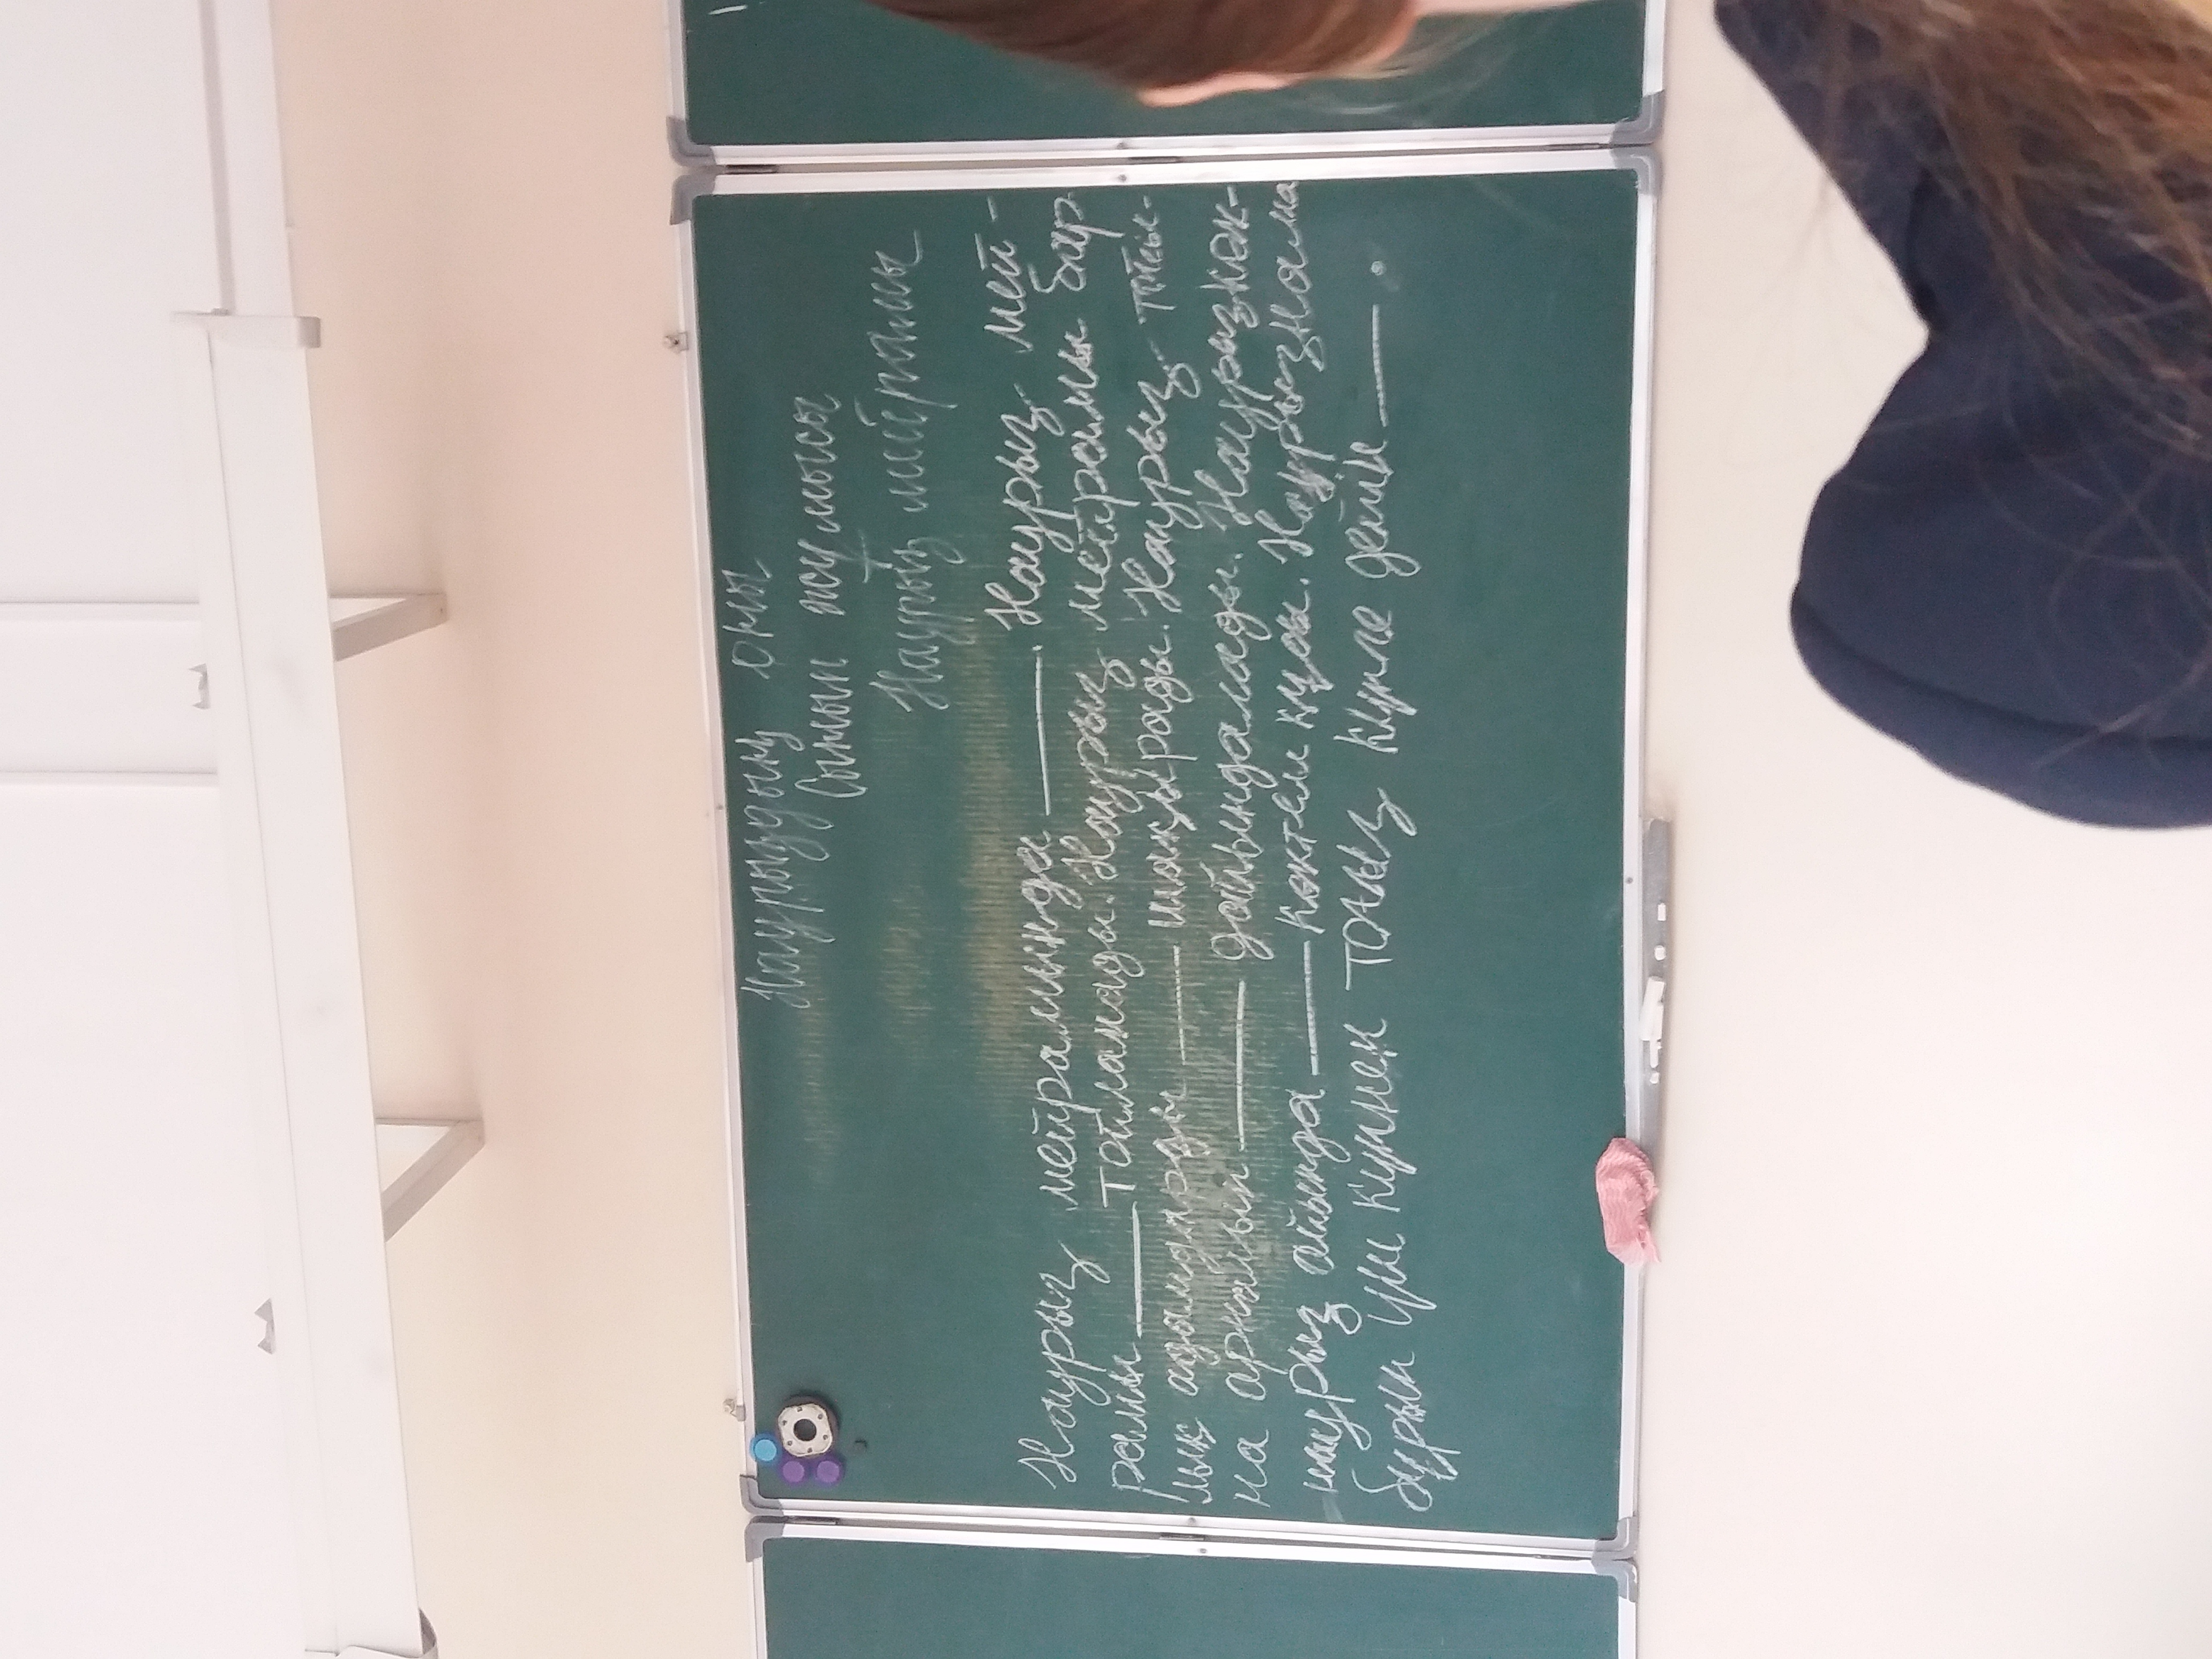 Наурыздың оны
Сынып жұмысы
Наурыз мейрамы
Наурыз мейрамында ——. Наурыз мей-
рамы —— тойланады. Наурыз мейрамы бар-
лық адамдарды —— шақырады. Наурыз той-
на арналып —— дайындалады. Наурызкөк-
наурыз айында —— көктем құсы. Наурызнама
бұрын үш күннен тоғыз күнге дейін ——.